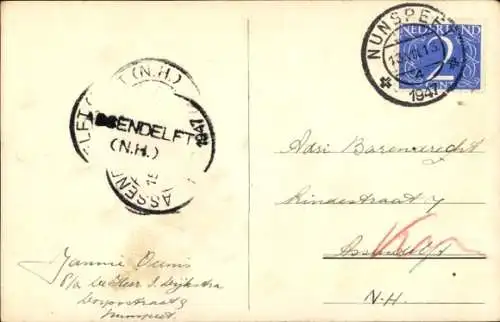 NUNSPEET
1947
NEDERLAND
2
CENT
ASSENDELFT (N.H.)
1947
ASSENDELFT
(N.H.)
Adri Barendrecht
Lindestraat 7
Assendelft
N-H.
Jannie
P/a De Heer J. Dijkstra
Dorpsstraat
Nunspeet.